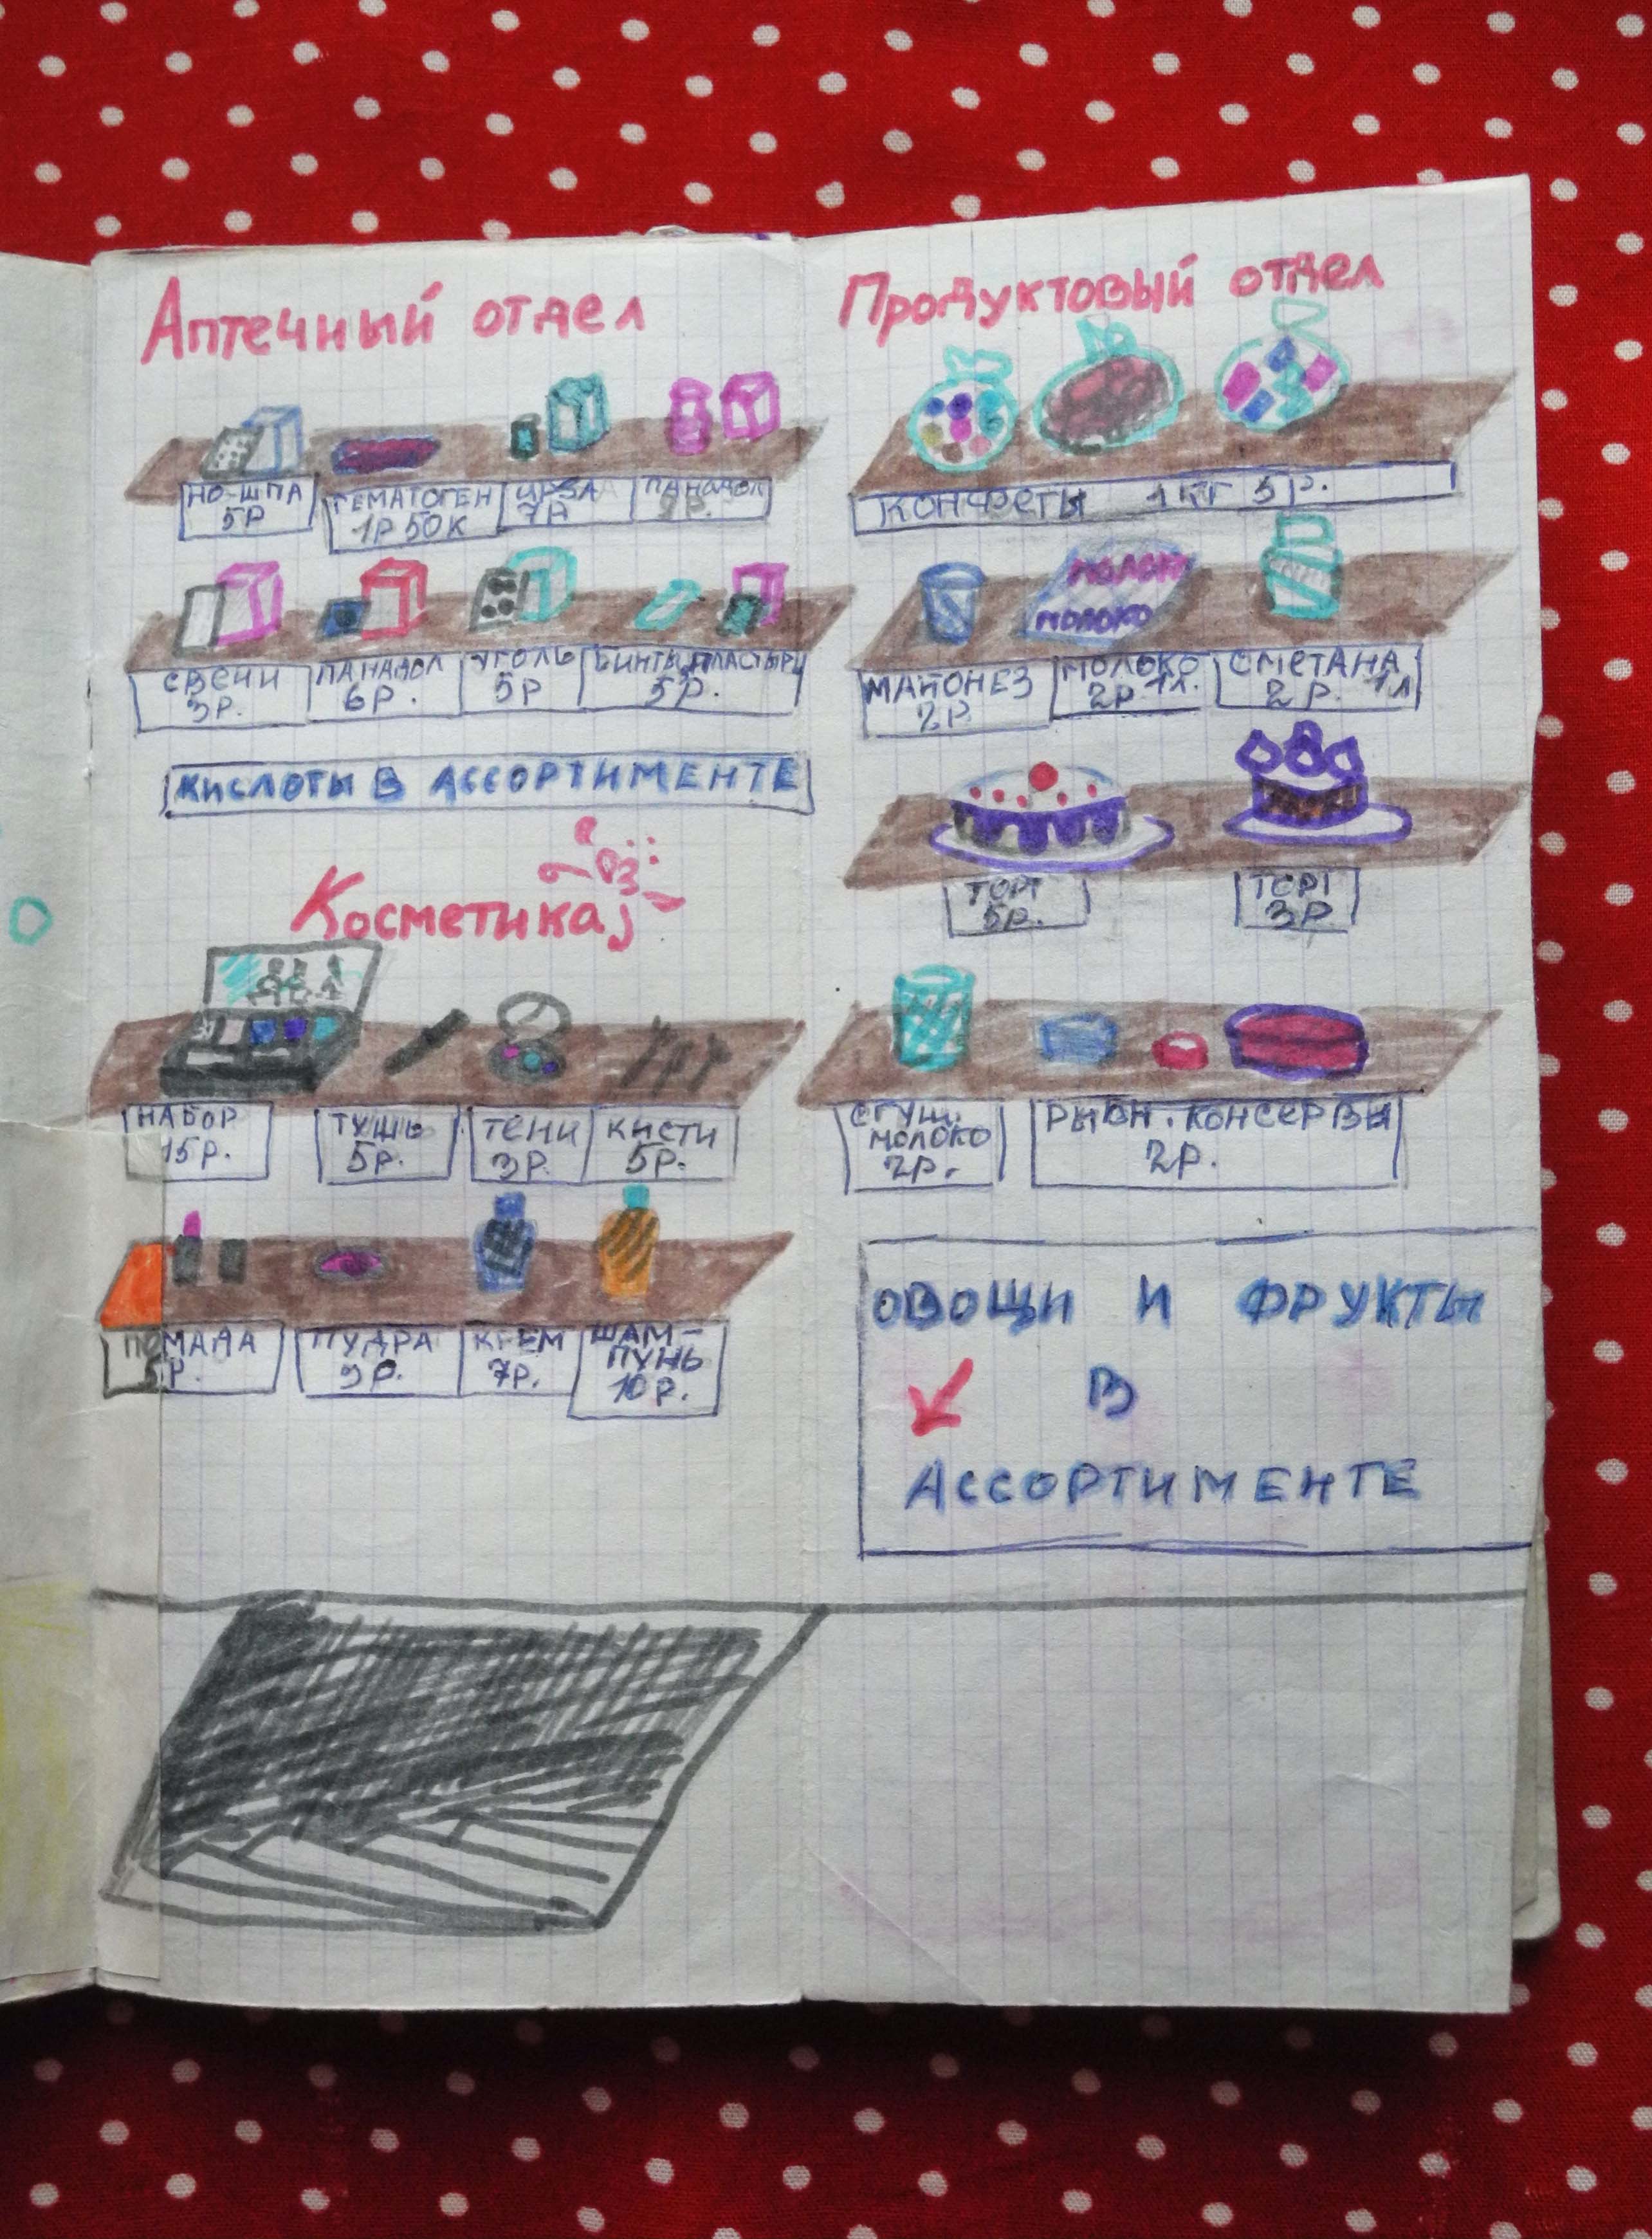 Аптечный отдел
НО-ШПА
5Р
ГЕМАТОГЕН
1Р 50К
7Р
ПАНАДОЛ
Р.
СВЕЧИ
3Р.
ПАНАДОЛ
6Р.
УГОЛЬ
5Р
БИНТЫ, ПЛАСТЫРИ
5Р.
КИСЛОТЫ В АССОРТИМЕНТЕ
Косметика
НАБОР
15Р.
ТУШЬ
5Р.
ТЕНИ
3Р.
КИСТИ
5Р.
ПОМАДА
5Р.
ПУДРА
9Р.
КРЕМ
7Р.
ШАМ-
ПУНЬ
10Р.
Продуктовый отдел
КОНФЕТЫ 1КГ 5Р.
МОЛОК
МОЛОКО
МАЙОНЕЗ
2Р
МОЛОКО
2Р. 1Л.
СМЕТАНА
2Р. 1Л
ТОРТ
5Р.
ТОРТ
3Р
СГУЩ.
МОЛОКО
2Р.
РЫБН. КОНСЕРВЫ
2Р.
ОВОЩИ И ФРУКТЫ
В
АССОРТИМЕНТЕ